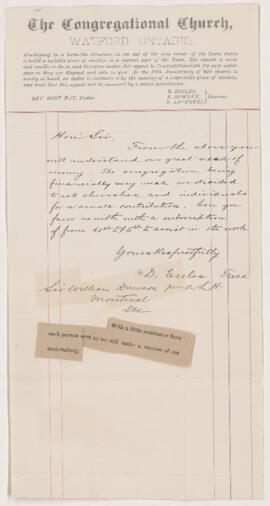 The Congregational Church,
WATFORD, ONTARIO.
Worshipping in a barn-like structure, in an out of the way corner of the Town, desire
to build a suitable place of worship in a central part of the Town. The church is weak
and unable to do so, and therefore makes this appeal to Congregationalists for such assist-
ance as they are disposed and able to give. As the 50th Anniversary of this church
is nearly at hand, we desire to celebrate it by the opening of a respectable place of worship,
and trust that this appeal will be answered by a small contribution.
REV. ROBT. HAY, Pastor.
D. ECCLES,
R. DOWDEN, Deacons.
E. SAUNDERS,
Hon Sir.
From the above you
will understand our great need of
money. The congregation being
financially very weak we decided
to ask churches and individuals
for a small contribution. Can you
favor us with a subscription
of from to assist in the work
Yours Respectfully
D. Eccles Treas
Sir William Dawson per A. L. H.
Montreal
Que
With a little assistance from
each person sent to we will make a success of our
undertaking.